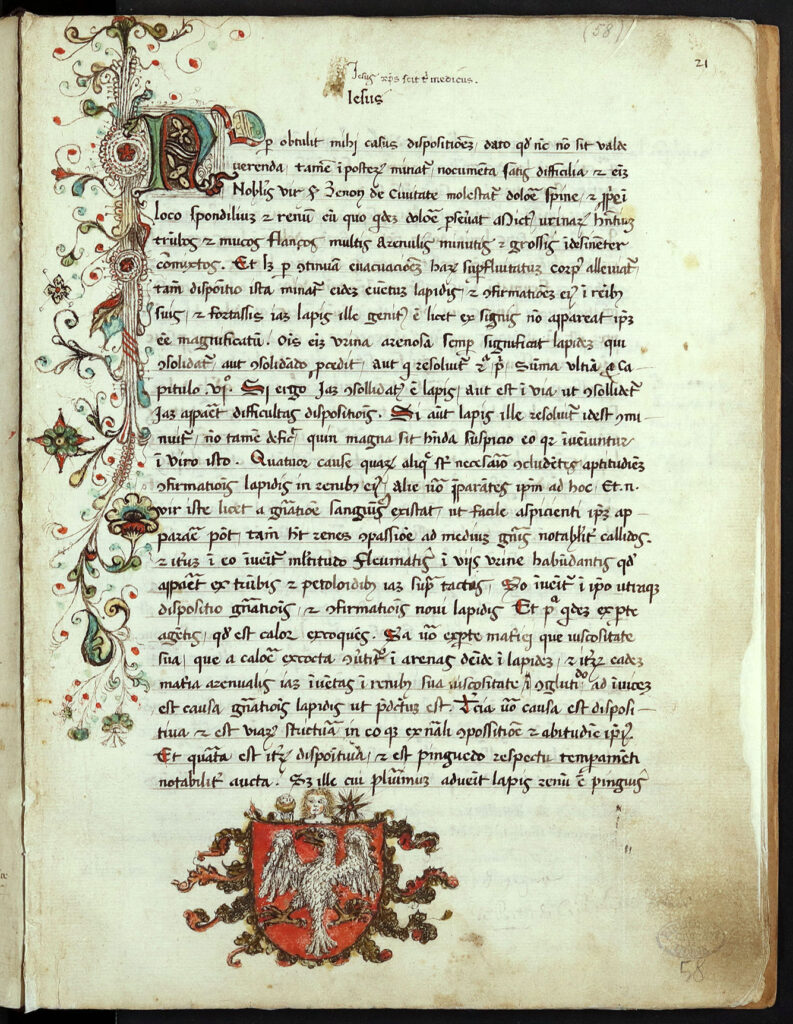 (58)
21
Iesus xp̄s scit t̄ medicus.
Iesus
Rep obtulit mihi casus dispositiōēz, dato qđ nc̄ nō sit valde
uerenda, tamē ī posteꝝ minat᷑ nocumēta satis difficilia, ⁊ ē iz
Nobłis vir ẜ Zenoŋ de Ciuitate molestat᷑ dolōē spine, ⁊
loco spondiliuz ⁊ renū cū quo qđez dolōē ꝑseūat Mict᷑ urinaꝝ hn̄tiuz
trūbos ⁊ mucos flancos multis arenulis minutis ⁊ grossis īdesinēter
cōmixtos. Et lꝫ ꝑ ꝯtinuā euacuatiōēz haꝝ suꝑfluitatuz corp᷒ alleuiat᷑
tam̄ dispōitio ista minat᷑ eidez euētuz lapidis, ⁊ ꝯfirmatiōēz ei᷒ ī reīb᷒
suis, ⁊ fortassis iaz lapis ille genit᷒ ē licet ex signis nō appareat ip̄z
ēē magnificatū. Ois eīz urina arenosa semꝑ significat lapidez, qui
ꝯsolidat᷑, aut ꝯsolidādo ꝓcedit, aut q̄ resoluit᷑ Sūma ultīa Ca-
pitulo vj°. Si ergo Iaz ꝯsollidat᷒ ē lapis, aut est ī via ut ꝯsollidet᷑
Iaz appaēt difficultas dispositiōis. Si aūt lapis ille resoluit᷑ idest ꝯmi-
nuit᷑, nō tamē defic᷑, quin magna sit hn̄da suspicio eo qꝛ īueniuntur
ī viro isto. Quatuor cause quaꝝ aliq̄ st̄ necesāio ꝯcludētes aptitudīēz
ꝯfirmatiōis lapidis in renib᷒ ei᷒, alie uō p̄parātes ip̄m ad hoc. Et.n.
vir iste licet a gn̄atiōē sanguīe᷒ existat, ut facile aspicienti ip̄z ap-
paraē pōt, tam̄ hꝫ renes ꝯpassiōē ad mediuz gn̄is notabłr callidos.
⁊ itez ī eo īueit᷑ młtitudo fleumatis ī vijs urine habūdantis qđ
appaēt ex trūbis ⁊ petoloidib᷒ iaz supͣ tactas, So īueit᷑ ī ip̄o utiraqꝫ
dispositio gn̄atiōis, ⁊ ꝯfirmatiōis noui lapidis Et p̄ᵃ qđez ex ꝑte
agētis, qđ est calor excoquēs. Sa uō ex ꝑte mat̄iei que uiscositate
sua, que a calōē excocta ꝯūtit᷑ ī arenas deīde ī lapidez, ⁊ itez eadez
mat̄ia arenualis iaz īuētas ī renib᷒ sua uiscositate, ꝯgluti°ᵈᵒ ad īuicez
est causa gn̄atiōis lapidis ut p̄dctuz est. Tcia uō causa est disposi-
tiua ⁊ est viaꝝ strictuā in eo qꝫ ex nāali ꝯpossitiōē ⁊ abitudīe ip̄i᷒.
Et quāta est itez dispoitiua, ⁊ est pinguedo respectu temꝑamēti
notabilit᷑ aucta. Sꝫ ille cui plu᷑imuz adueīt lapis renū ē pinguis
58